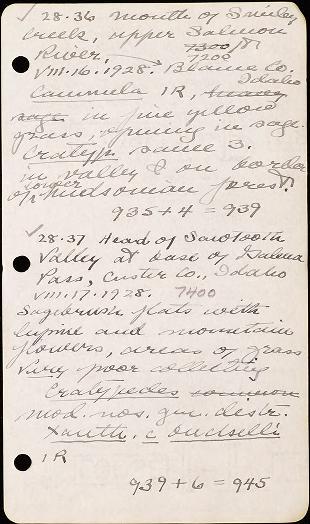 ✓ 28.36 mouth of Smiley
Creek, upper Salmon
River, 7300 ft
7200
VIII.16.1928. Blaine Co.,
Idaho
Camnula 1R,
sage in fine yellow
grass, opening in sage.
Cratyp. same 3.
in valley & on border
of lower Hudsonian forest.
935+4 = 939
✓ 28.37 Head of Sawtooth
Valley at base of Galena
Pass, Custer Co., Idaho
VIII.17.1928. 7400
Sagebrush flats with
lupine and mountain
flowers, areas of grass
Very poor collecting
Cratypedes common
mod. nos. gen. distr.
Xanth. c
1R
939+6 = 945